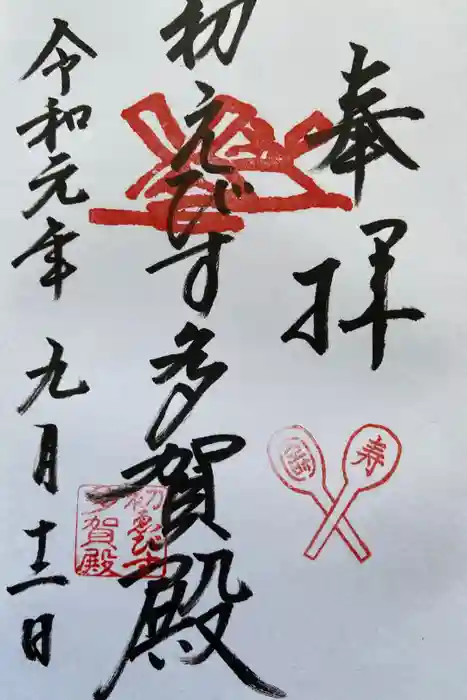 奉拝
初えびす多賀殿
令和元年九月十二日
初ゑびす
多賀殿
寿